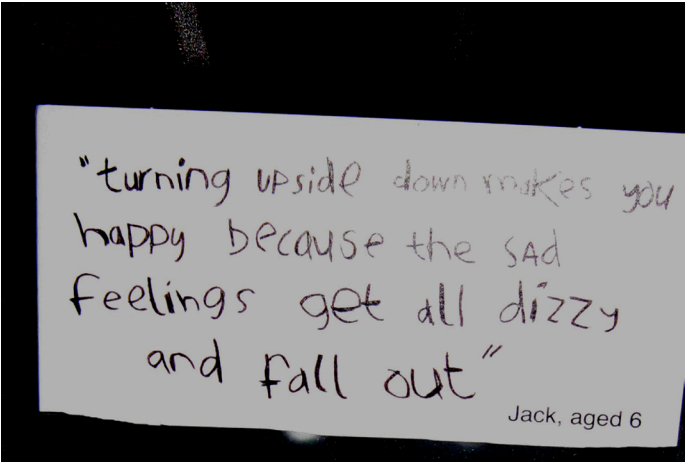 "turning upside down makes you
happy because the SAd
feelings get all dizzy
and fall out"
Jack, aged 6